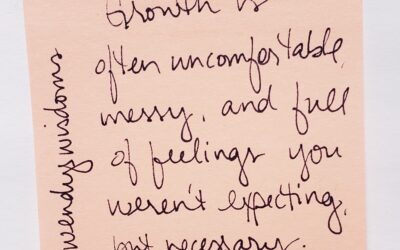 Growth is
often uncomfortable,
messy, and full
of feelings you
weren't expecting,
but necessary.
wendywisdoms